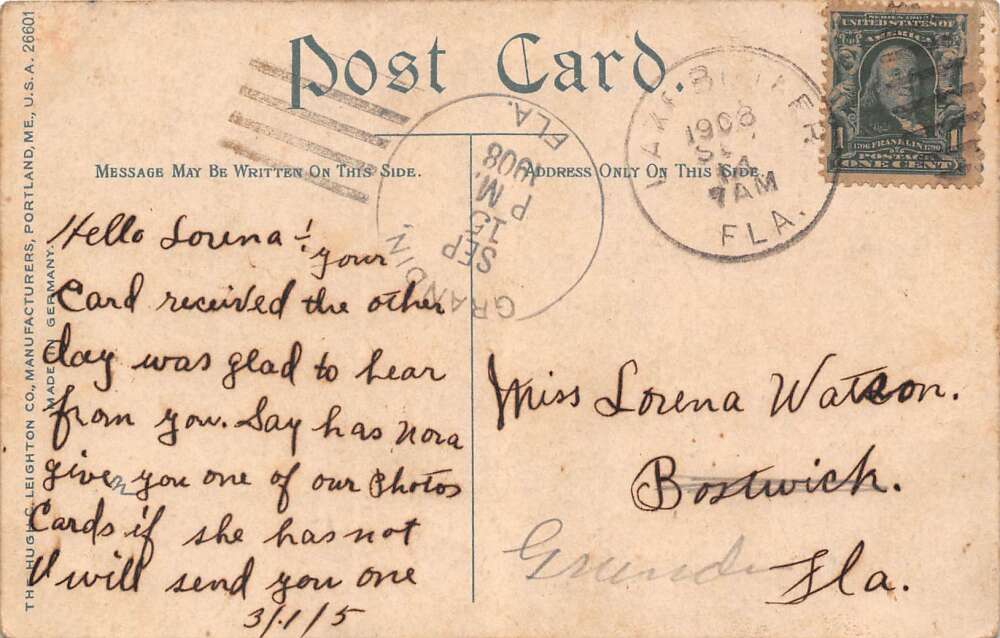 Post Card.
MESSAGE MAY BE WRITTEN ON THIS SIDE.
ADDRESS ONLY ON THIS SIDE.
THE HUGH C. LEIGHTON CO., MANUFACTURERS, PORTLAND, ME., U.S.A. 26601
MADE IN GERMANY.
GRANDIN, FLA.
SEP
15
P M.
1908
1908
7 AM
FLA.
SERIES 1902
UNITED STATES OF
AMERICA
1706 FRANKLIN 1790
1 POSTAGE 1
ONE CENT
Hello Lorena! your
Card received the other
day was glad to hear
from you. Say has Nora
given you one of our Photos
Cards if she has not
I will send you one
3/1/5
Miss Lorena Watson.
Bostwick.
Fla.